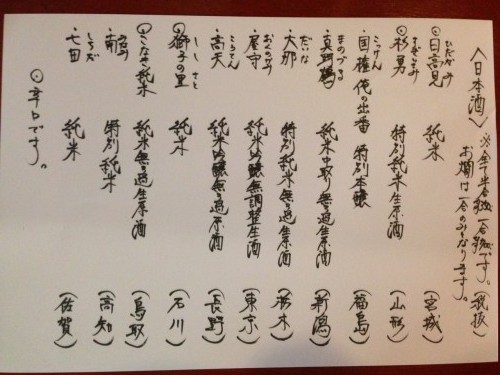 〈日本酒〉 ※全て半合 一合です。 税抜
お燗は一合のみとなります。
ひたかみ
⊙日高見 純米 (宮城)
すぎいさみ
・杉勇 特別純米生原酒 (山形)
こっけん
・国権 俺の出番 特別本醸 (福島)
まのづる
・真野鶴 純米中取り無ろ過生原酒 (新潟)
だいな
・大那 特別純米無ろ過生原酒 (栃木)
おくのかみ
・屋守 純米吟醸無調整生酒 (東京)
・高天 純米吟醸無ろ過原酒 (長野)
ししさと
⊙獅子の里 純米 (石川)
⊙こなき純米 純米無ろ過生原酒 (鳥取)
みなみ
・南 特別純米 (高知)
しちだ
・七田 純米 (佐賀)
⊙辛口です。